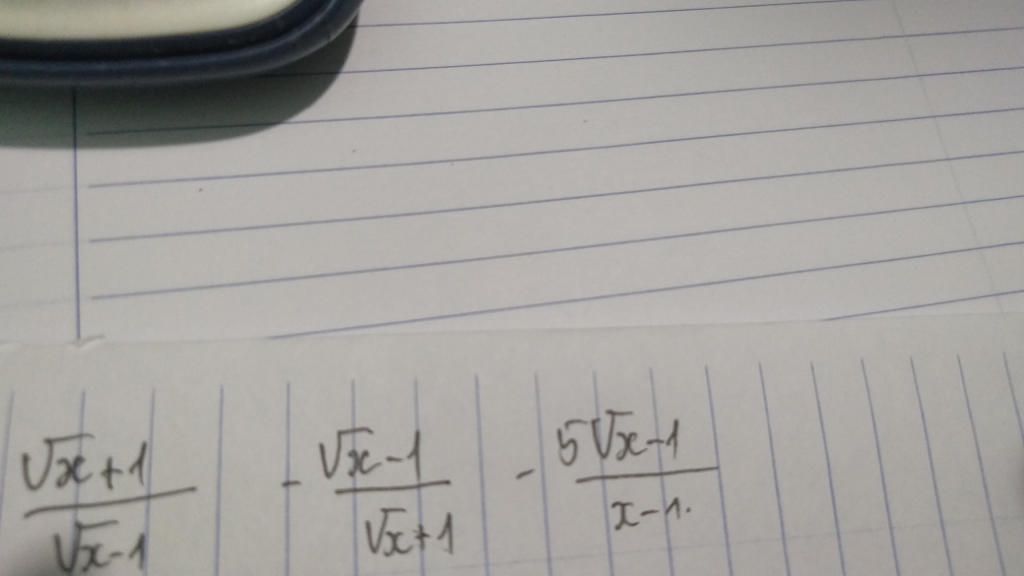 \frac{\sqrt{x}+1}{\sqrt{x}-1} - \frac{\sqrt{x}-1}{\sqrt{x}+1} - \frac{5\sqrt{x}-1}{x-1}.